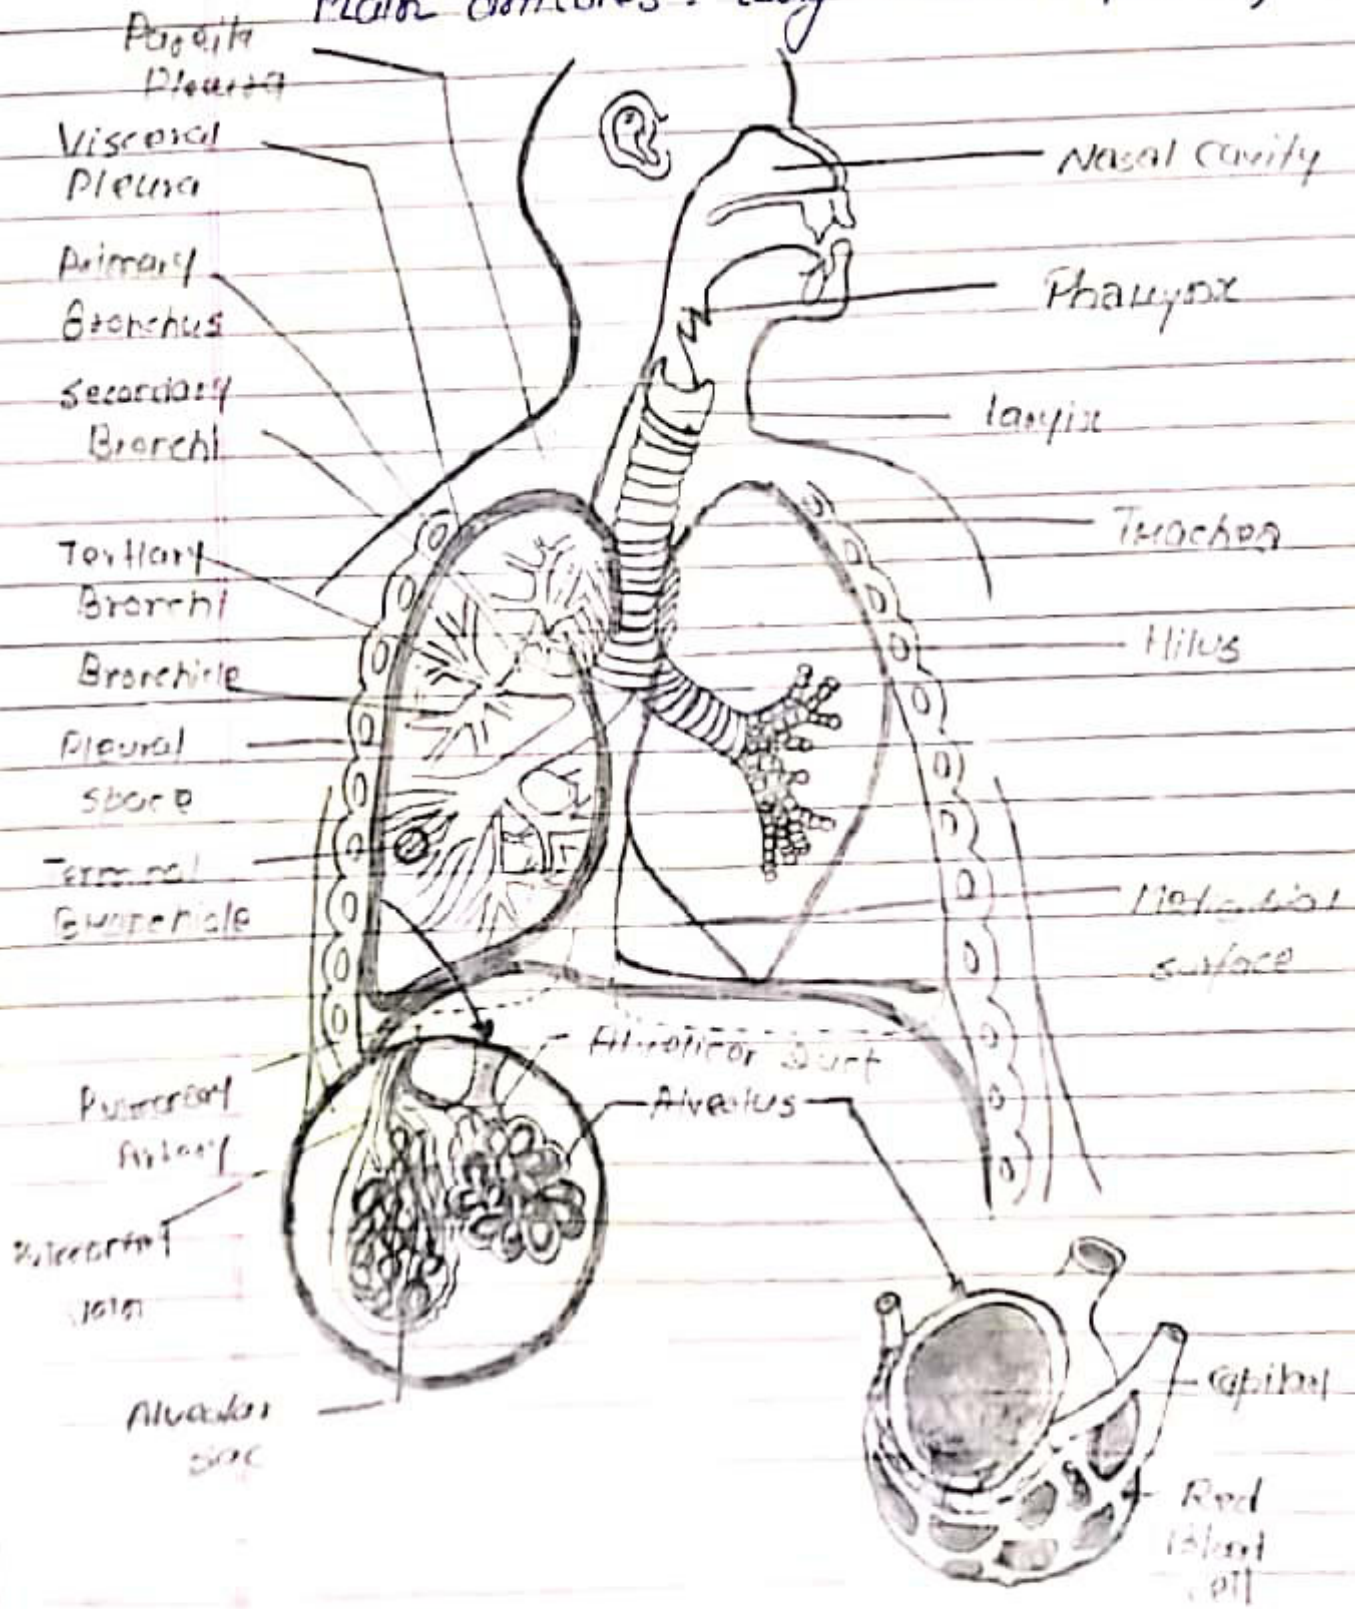 Main
Pleura
Visceral
Pleura
Primary
Bronchus
Secondary
Bronchi
Tertiary
Bronchi
Bronchiole
Pleural
space
Terminal
Bronchiole
Pulmonary
Artery
Alveolar
sac
Nasal Cavity
Pharynx
larynx
Trachea
Hilus
surface
Duct
Alveolus
Capillary
Red
Blood
Cell